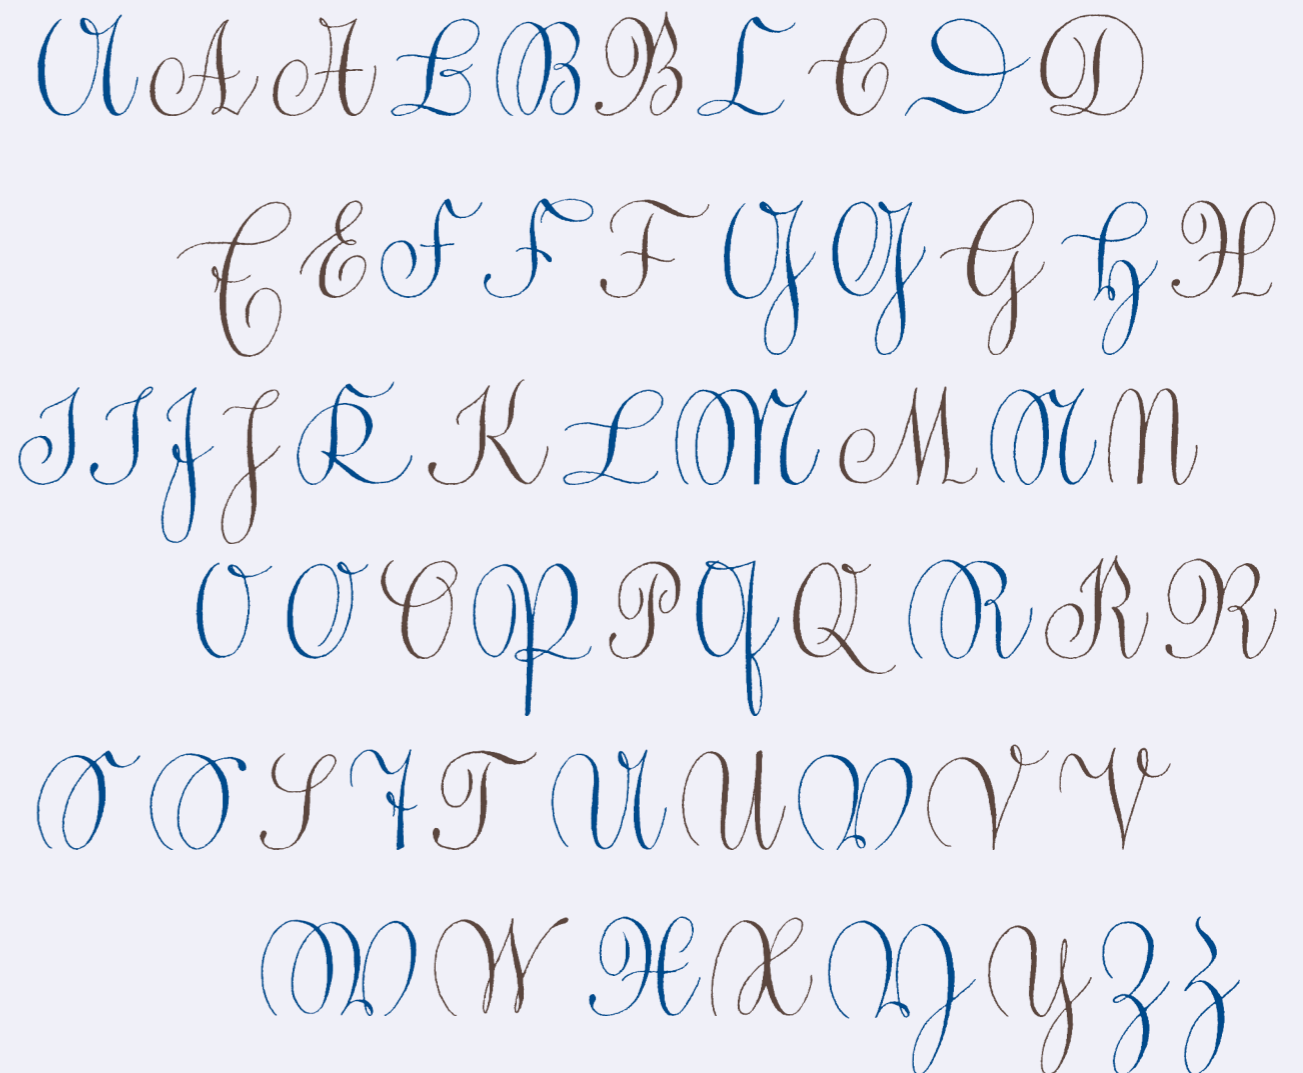 A A A B B B C C D D
E E F F F G G G H H
I I J J K K L M M N N
O O O P P Q Q R R R
S S S T T U U V V V
W W X X Y Y Z Z